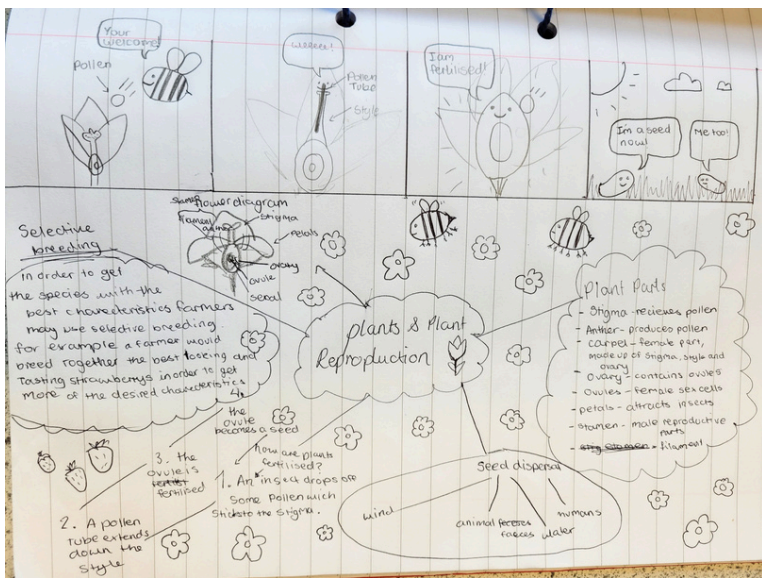 Your
welcome!
Pollen
weeeee!
Pollen
Tube
Style
I am
fertilised!
I'm a seed
now!
Me too!
Selective
breeding
in order to get
the species with the
best charecteristics farmers
may use selective breeding.
for example a farmer would
breed together the best looking and
tasting strawberrys in order to get
more of the desired characteristics
flower diagram
filament
anther
Stigma
Petals
ovary
ovule
sepal
plants & Plant
Reproduction
Plant Parts
- Stigma - recieves pollen
- Anther - produces pollen
- carpel - female part,
made up of stigma, style and
ovary
- Ovary - contains ovules
- Ovules - female sex cells
- petals - attracts insects
- stamen - male reproductive
parts
- filament
how are plants
fertilised?
1. An insect drops off
some pollen wich
sticks to the stigma.
2. A pollen
tube extends
down the
style
3. the
ovule is
fertilised
4.
the
ovule
becomes a seed
Seed dispersal
wind
animal
faeces
water
humans